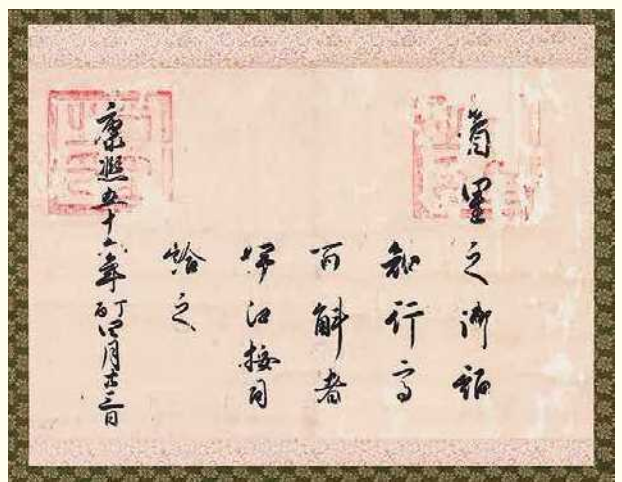 首里之御詔
知行高
百斛者
伊江按司
給之
康熙五十六年丁酉四月廿三日